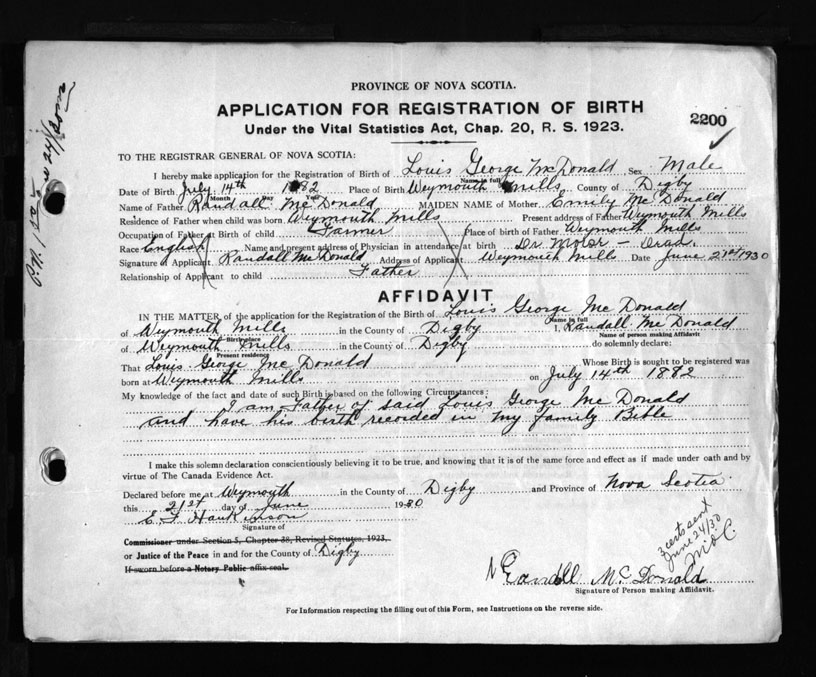 PROVINCE OF NOVA SCOTIA.
APPLICATION FOR REGISTRATION OF BIRTH
2200
Under the Vital Statistics Act, Chap. 20, R. S. 1923.
TO THE REGISTRAR GENERAL OF NOVA SCOTIA:
I hereby make application for the Registration of Birth of Louis George McDonald Sex Male
Name in full
Date of Birth July 14th 1882 Place of Birth Weymouth Mills County of Digby
Month Day Year
Name of Father Randall McDonald MAIDEN NAME of Mother Emily McDonald
Residence of Father when child was born Weymouth Mills Present address of Father Weymouth Mills
Occupation of Father at Birth of child Farmer Place of birth of Father Weymouth Mills
Race English Name and present address of Physician in attendance at birth Dr — Dead.
Signature of Applicant Randall McDonald Address of Applicant Weymouth Mills Date June 21st 1930
Relationship of Applicant to child Father
AFFIDAVIT
IN THE MATTER of the application for the Registration of the Birth of Louis George McDonald
Name in full
of Weymouth Mills in the County of Digby I, Randall McDonald
Birth-place Name of person making Affidavit
of Weymouth Mills in the County of Digby do solemnly declare:
Present residence
That Louis George McDonald Whose Birth is sought to be registered was
born at Weymouth Mills on July 14th 1882
My knowledge of the fact and date of such Birth is based on the following Circumstances:
I am Father of said Louis George McDonald
and have his birth recorded in my family Bible
I make this solemn declaration conscientiously believing it to be true, and knowing that it is of the same force and effect as if made under oath and by
virtue of The Canada Evidence Act.
Declared before me at Weymouth in the County of Digby and Province of Nova Scotia
this 21st day of June 1930
E F Hankinson
Signature of
Commissioner under Section 5, Chapter 38, Revised Statutes, 1923,
or Justice of the Peace in and for the County of Digby
If sworn before a Notary Public affix seal.
certs sent
June 24/30
Randall McDonald
Signature of Person making Affidavit.
For Information respecting the filling out of this Form, see Instructions on the reverse side.